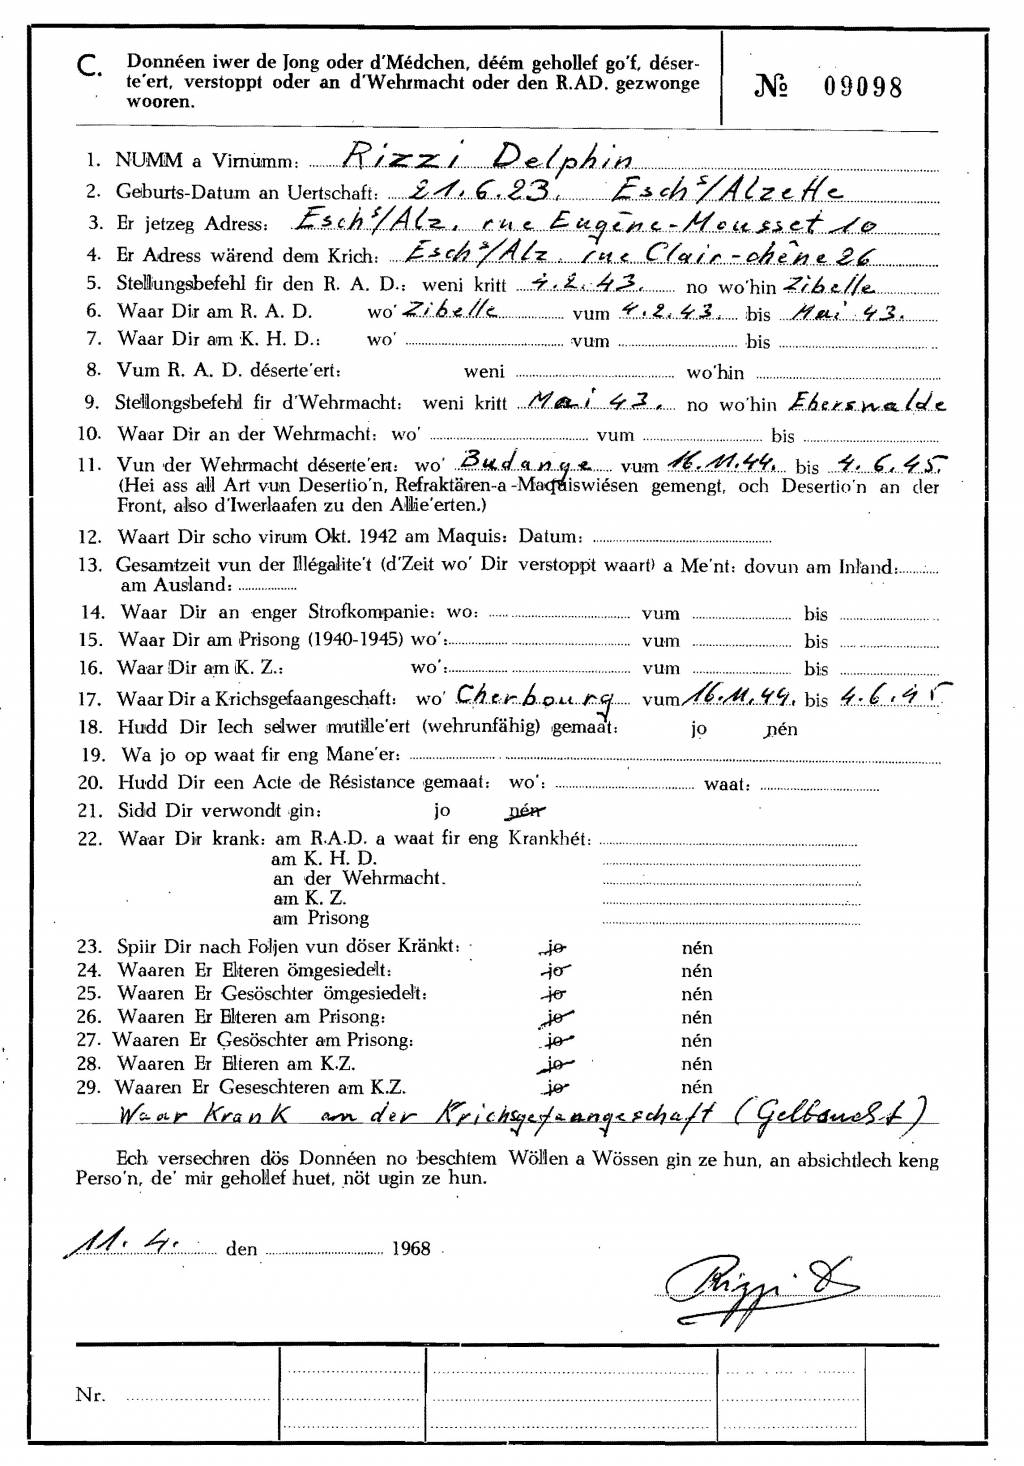 C. Donnéen iwer de Jong oder d'Médchen, déém gehollef go'f, déser-
te'ert, verstoppt oder an d'Wehrmacht oder den R.AD. gezwonge
wooren.
№ 09098
1. NUMM a Virnumm: Rizzi Delphin
2. Geburts-Datum an Uertschaft: 21.6.23. Esch s/Alzette
3. Er jetzeg Adress: Esch s/Alz. rue Eugène-Mousset 10
4. Er Adress wärend dem Krich: Esch s/Alz. rue Clair-chêne 26
5. Stellungsbefehl fir den R. A. D.: weni kritt 4.2.43. no wo'hin Zibelle
6. Waar Dir am R. A. D. wo' Zibelle vum 4.2.43. bis Mai 43.
7. Waar Dir am K. H. D.: wo' vum bis
8. Vum R. A. D. déserte'ert: weni wo'hin
9. Stellongsbefehl fir d'Wehrmacht: weni kritt Mai 43. no wo'hin Eberswalde
10. Waar Dir an der Wehrmacht: wo' vum bis
11. Vun der Wehrmacht déserte'ert: wo' Budange vum 16.11.44. bis 4.6.45.
(Hei ass all Art vun Desertio'n, Refraktären-a-Maquiswiésen gemengt, och Desertio'n an der
Front, also d'Iwerlaafen zu den Allie'erten.)
12. Waart Dir scho virum Okt. 1942 am Maquis: Datum:
13. Gesamtzeit vun der Illégalite't (d'Zeit wo' Dir verstoppt waart) a Me'nt: dovun am Inland:
am Ausland:
14. Waar Dir an enger Strofkompanie: wo: vum bis
15. Waar Dir am Prisong (1940-1945) wo': vum bis
16. Waar Dir am K. Z.: wo': vum bis
17. Waar Dir a Krichsgefaangeschaft: wo' Cherbourg vum 16.11.44. bis 4.6.45
18. Hudd Dir Iech selwer mutille'ert (wehrunfähig) gemaat: jo nén
19. Wa jo op waat fir eng Mane'er:
20. Hudd Dir een Acte de Résistance gemaat: wo': waat:
21. Sidd Dir verwondt gin: jo nén
22. Waar Dir krank: am R.A.D. a waat fir eng Krankhét:
am K. H. D.
an der Wehrmacht.
am K. Z.
am Prisong
23. Spiir Dir nach Foljen vun döser Kränkt: jo nén
24. Waaren Er Elteren ömgesiedelt: jo nén
25. Waaren Er Gesöschter ömgesiedelt: jo nén
26. Waaren Er Elteren am Prisong: jo nén
27. Waaren Er Gesöschter am Prisong: jo nén
28. Waaren Er Elteren am K.Z. jo nén
29. Waaren Er Geseschteren am K.Z. jo nén
Waar Krank an der Krichsgefaangeschaft (Gelbsucht)
Ech versechren dös Donnéen no beschtem Wöllen a Wössen gin ze hun, an absichtlech keng
Perso'n, de' mir gehollef huet, nöt ugin ze hun.
11. 4. den 1968
Rizzi D
Nr.